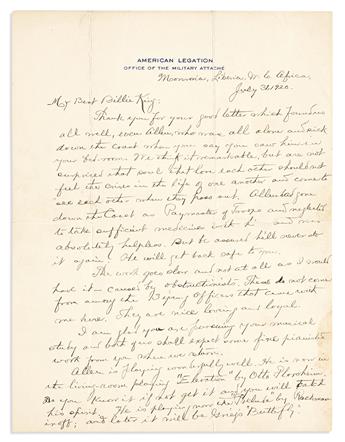 AMERICAN LEGATION
OFFICE OF THE MILITARY ATTACHÉ
Monrovia, Liberia, W. C. Africa,
July 31, 1920.
My Best Billie King:
Thank you for your good letter which found us
all well, even Allen, who was all alone and sick
down the Coast when you say you saw him in
your bed room. We think it remarkable, but are not
surprised that souls that love each other should not
feel the crises in the life of one another and come to
see each other when they pass out. Allen had gone
down the Coast as Paymaster of Troops and neglected
to take sufficient medicines with h and was
absolutely helpless. But be assured he'll never do
it again. He will get back safe to you.
The work goes slow and not at all as I would
have it causes by obstructionists. These do not come
from among the young officers that came with
me here. They are nice loving and loyal.
I am glad you are pursuing your musical
study and shall expect some fine pianistic
work from you when we return.
Allen is playing wonderfully well. He is now in
the living-room playing "Elevation" by Otto Floersheim.
Do you know it if not get it and you will catch
his spirit. He is playing now the "Prelude" by Rachman-
inoff; and later it will be Grieg's "Butterfly".